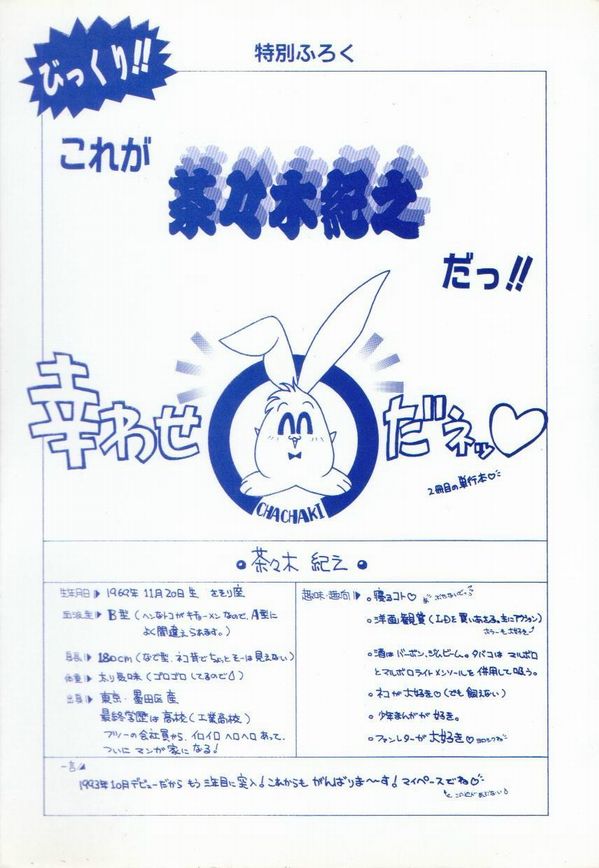 びっくり!!
特別ふろく
これが
茶々木紀之
だっ!!
幸わせ
だネッ♡
CHACHAKI
2冊目の単行本♡
• 茶々木 紀之 •
生年月日▶ 1969年 11月20日 生 さそり座
血液型▶ B型(ヘンなトコがキチョーメンなので、A型に
よく間違えられます。)
身長▶ 180cm(なで型、ネコ背でちょっとそーは見えない)
体重▶ 太り気味(ゴロゴロしてるので)
出身▶ 東京・墨田区産
最終学歴は高校(工業高校)
フツーの会社員から、イロイロヘロヘロあって、
ついにマンが家になる!
趣味・趣向▶ 。寝るコト♡
。洋画観賞(LDを買いあさる。主にアクション)
ホラーも大好き
。酒はバーボン、ジムビーム。タバコはマルボロ
とマルボロライトメンソールを併用して吸う。
。ネコが大好き♡(でも飼えない)
。少年まんがが好き。
。ファンレターが大好き♡
一言
1993年10月デビューだからもう三年目に突入!これからもがんばりま〜す!マイペースでね♡